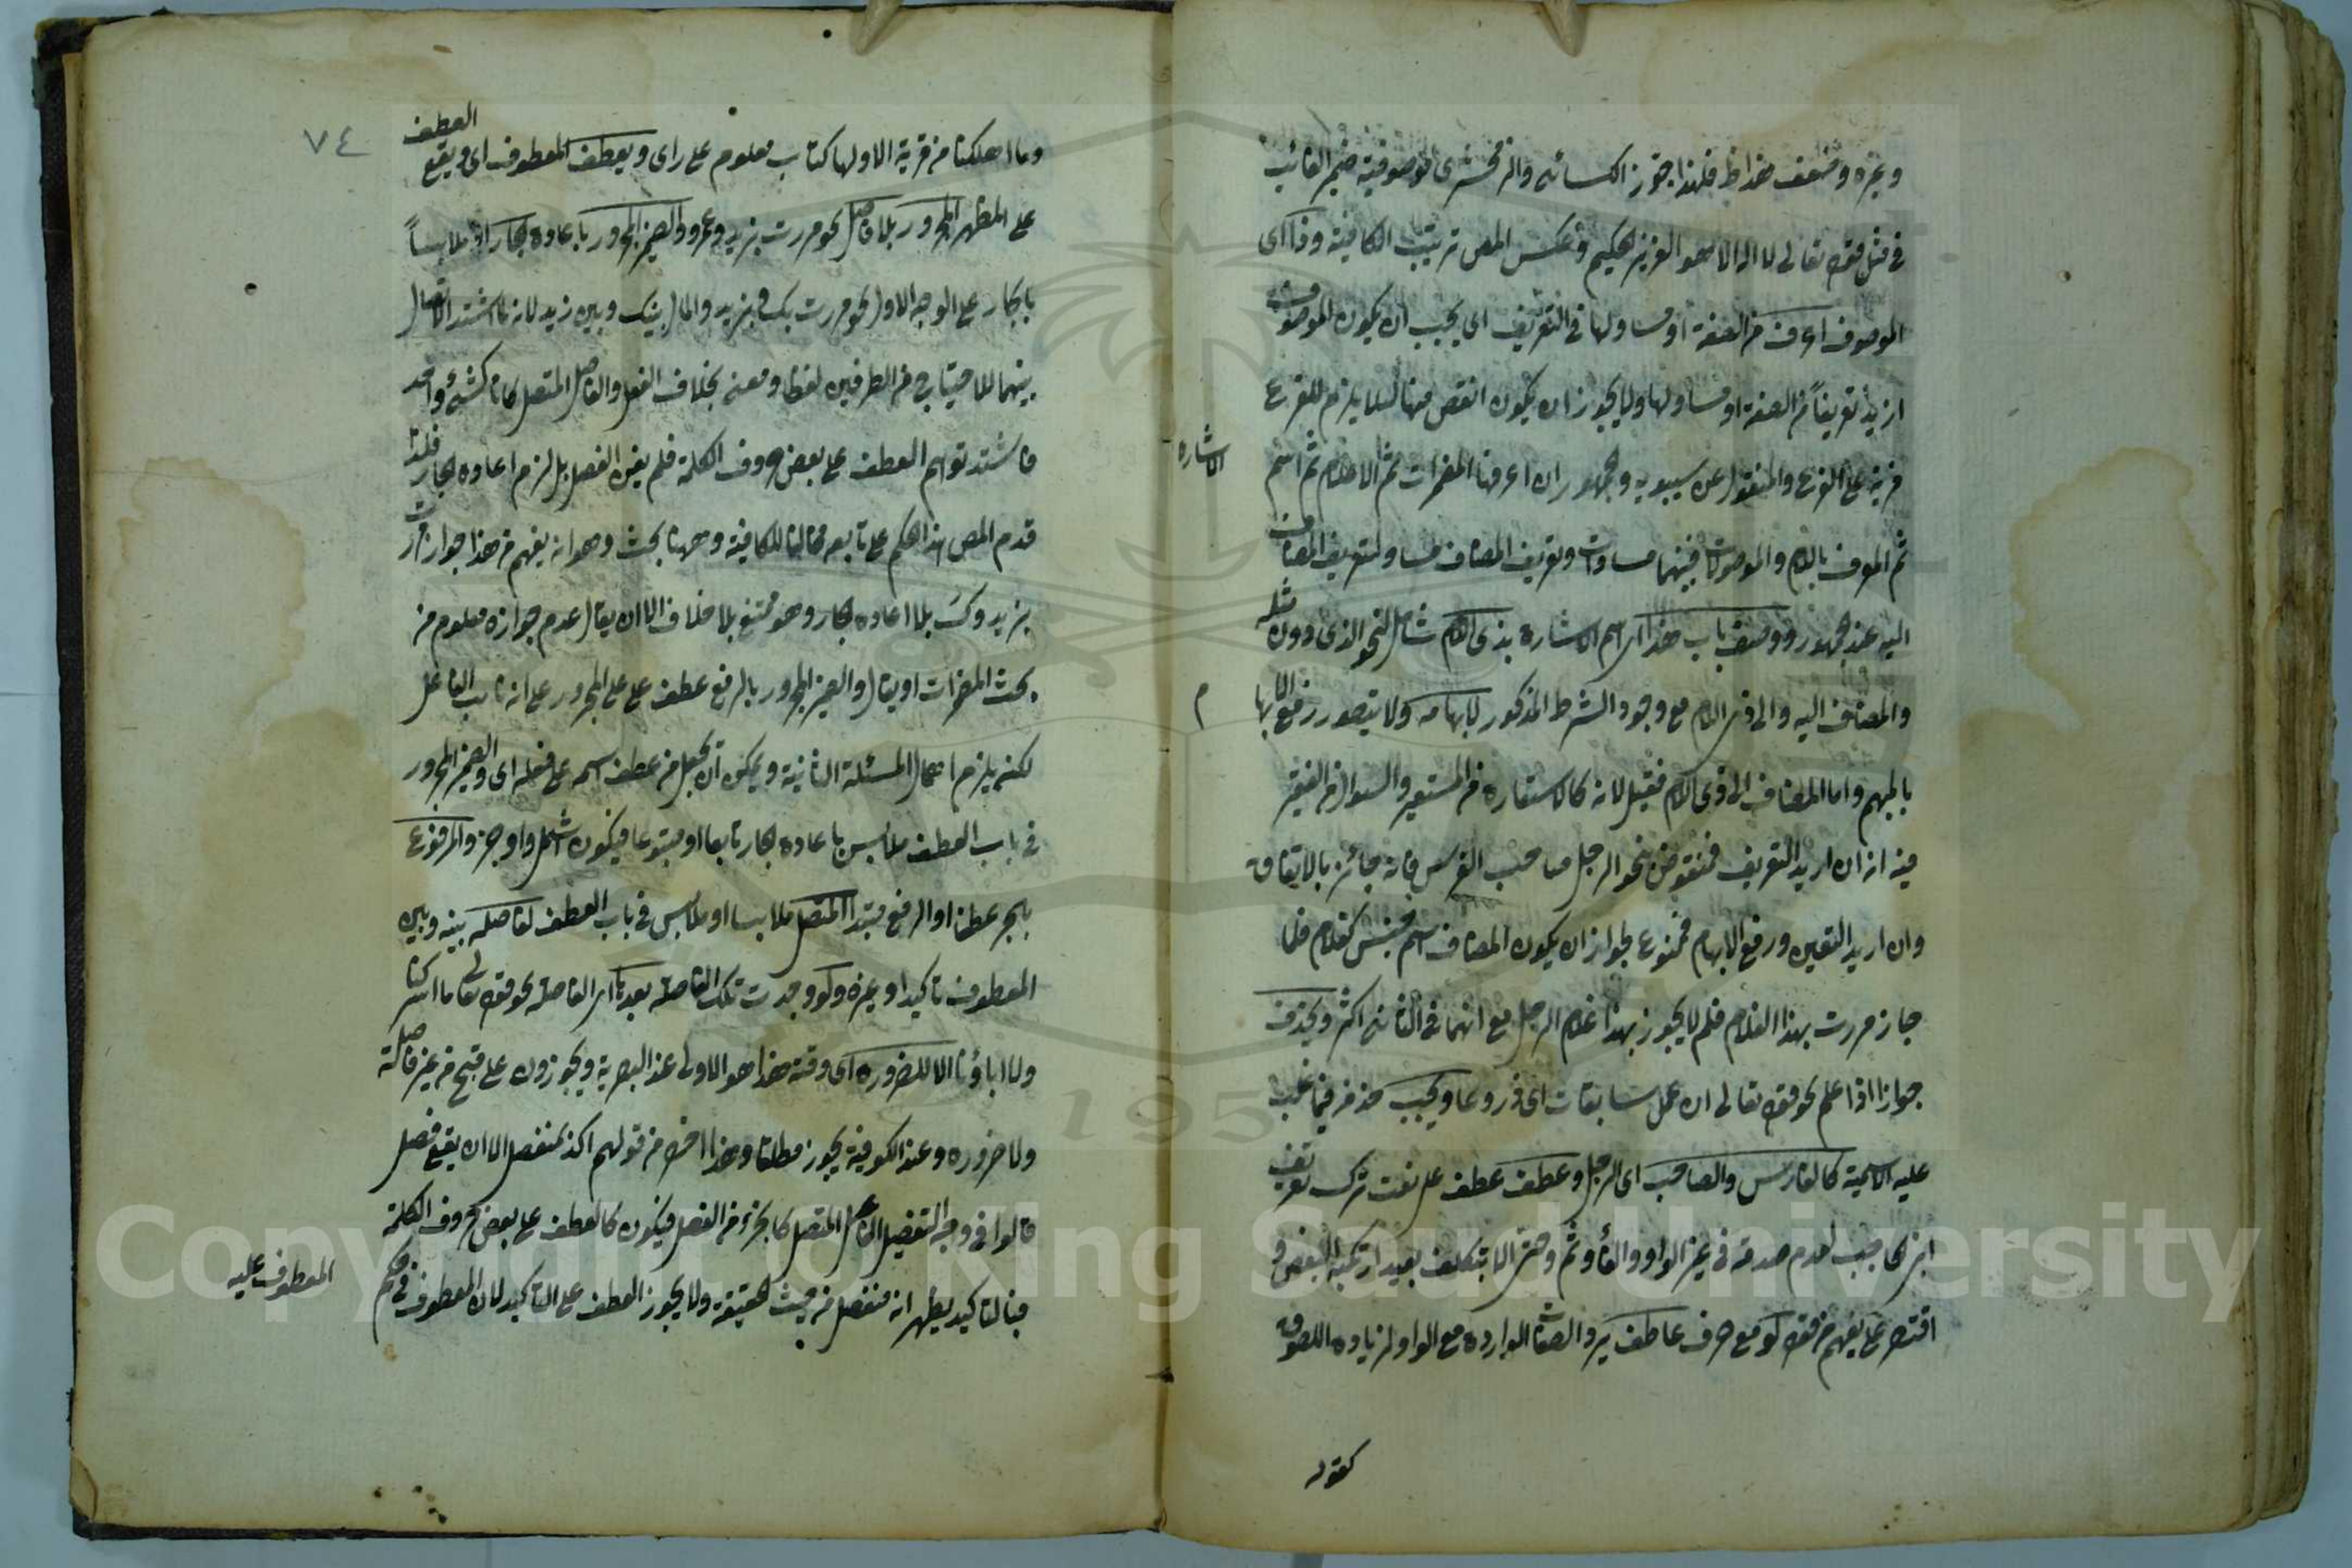 وغيره وضعف هذا ظ فلهذا جوز الكسائى والزمخشرى موصوفية ضمير الغائب
فى مثل قوله تعالى لا اله الا هو العزيز الحكيم وعكس المص ترتيب الكافية وذا اى
الموصوف اعرف من الصفة او مساو لها فى التعريف اى يجب ان يكون الموصوف
ازيد تعريفا من الصفة او مساو لها ولا يجوز ان يكون انقص منها لئلا يلزم للفرع
مزية على الفرع والمنقول عن سيبويه والجمهور ان اعرفها المضمرات ثم الاعلام ثم اسم
الاشاره
ثم المعرف باللام والموصولات فبينهما مساوات وتعريف المضاف مساو لتعريف المضاف
اليه عند الجمهور ووصف باب هذا اى اسم الاشارة بذى اللام شامل لنحو الذى دون مثله
والمضاف اليه والى ذى اللام مع وجود الشرط المذكور لابهامه ولا يتصور رفع الابهام
بالمبهم واما المضاف الى ذى اللام فقيل لانه كالاستعارة من المستعير والسؤال من الفقير
فيه انه ان اريد التعريف فمنقوض بنحو الرجل صاحب الفرس فانه جائز بالاتفاق
وان اريد التعيين ورفع الابهام فممنوع لجواز ان يكون المضاف اسم جنس كغلام فلما
جاز مررت بهذا الغلام فلم لا يجوز بهذا غلام الرجل مع انهما فى الثانى اكثر ويحذف
جوازا اذا علم نحو قوله تعالى ان اعمل سابغات اى دروعا ويجب حذفه فيما غلب
عليه الاسمية كالفارس والصاحب اى الرجل وعطف عطف على نعت ترك تعريف
ابن الحاجب لعدم صدقه فى غير الواو والفاء وثم وحتى الا بتكلف بعيد ارتكبه البعض و
اقتصر على يفهم من قوله لو مع حرف عاطف يرد الصفات الواردة مع الواو لزيادة اللصوق
كقوله
٧٤
وما اهلكنا من قرية الا ولها كتاب معلوم على راى ويعطف المعطوف اى ويقع العطف
على المظهر المجرور بلا فاصل نحو مررت بزيد وعمرو والضمير المجرور باعادة الجار اذ ملابسا
بالجار على الوجه الاول نحو مررت بك وبزيد والمال بينك وبين زيد لانه لما اشتد الاتصال
بينهما للاحتياج من الطرفين لفظا ومعنى بخلاف الفعل والفاعل المتصل كانا كشئ واحد
فاشتد توهم العطف على بعض حروف الكلمة فلم يغن الفصل بل لزم اعادة الجار فلذا
قدم المص هذا الحكم على تابعه مخالفا للكافية وههنا بحث وهو انه يفهم من هذا جواز مررت
بزيد وك بلا اعادة الجار وهو ممتنع بلا خلاف الا ان يقال عدم جوازه معلوم من
بحث المضمرات او يقال والضمير المجرور بالرفع عطف على على المجرور على انه نائب الفاعل
لكنه يلزم اهمال المسئلة الثانية ويمكن ان يجعل من عطف اسمه على فعله اى والضمير المجرور
فى باب العطف ملابس باعادة الجار تابعا او متبوعا فيكون اشمل واوجز والمرفوع
بالجر عطفا او الرفع مبتدأ المتصل ملابسا او ملابس فى باب العطف لفاصلة بينه وبين
المعطوف تاكيدا وغيره ولو وجدت تلك الفاصلة بعد اى الفاصلة نحو قوله تعالى ما اشركنا
ولا اباؤنا الا للضرورة اى وقته هذا هو الاولى عند البصرية ويجوزون على قبح من غير فاصلة
ولا ضرورة وعند الكوفية يجوز مطلقا وهذا اخصر من قولهم اكد بمنفصل الا ان يقع فصل
قالوا فى وجه التفصيل الفاعل المتصل كالجزء من الفعل فيكون كالعطف على بعض حروف الكلمة
فبالتاكيد يظهر انه منفصل من حيث الحقيقة ولا يجوز العطف على التاكيد لان المعطوف فى حكم
المعطوف عليه
Copyright to King Saud University
195